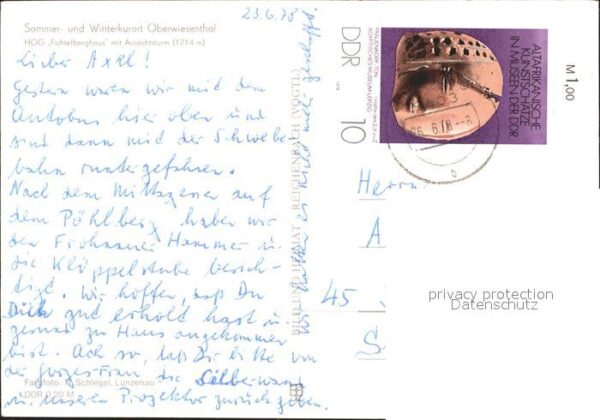 Sommer- und Winterkurort Oberwiesenthal
HOG „Fichtelberghaus" mit Aussichtsturm (1214 m)
23.6.78
Lieber Axel!
Gestern waren wir mit dem
Autobus hier oben und
sind dann mit der Schwebe
bahn runtergefahren.
Nach dem Mittagessen auf
dem Pöhlberg haben wir
den Frohnauer Hammer u.
die Klöppelstube besich-
tigt. Wir hoffen, daß Du
Dich gut erholt hast u.
gesund zu Haus angekommen
bist. Ach so, laß Dir bitte von
der Silberwand
u. unseren Projektor zurückgeben.
wir hatten es nicht mehr geschafft
Farbfoto: R. Schlegel, Lunzenau
DDR 0,20 M
BILD UND HEIMAT REICHENBACH (VOGTL)
ALTAFRIKANISCHE
KUNSTSCHÄTZE
IN MUSEEN DER DDR
FRAUENKOPF TON
ÄGYPTISCHES MUSEUM LEIPZIG
DDR
10
1978
M 1,00
Herrn
A
45
S
privacy protection
Datenschutz